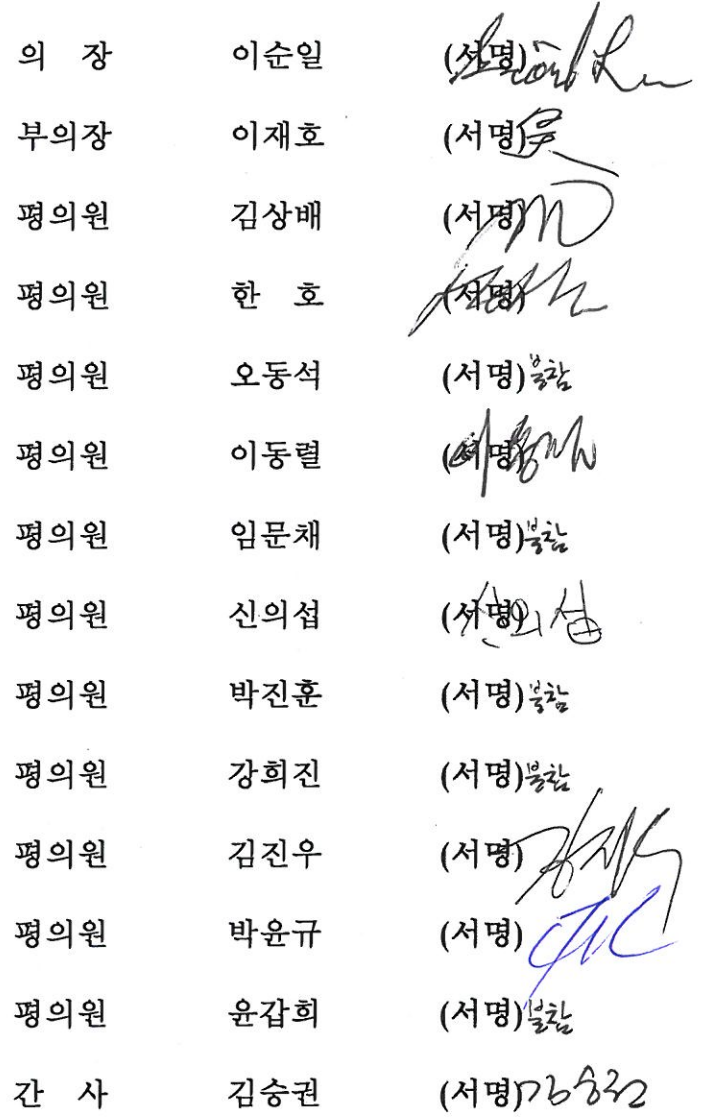 의 장 이순일 (서명)
부의장 이재호 (서명)
평의원 김상배 (서명)
평의원 한 호 (서명)
평의원 오동석 (서명)불참
평의원 이동렬 (서명)
평의원 임문채 (서명)불참
평의원 신의섭 (서명) 신의섭
평의원 박진훈 (서명)불참
평의원 강희진 (서명)불참
평의원 김진우 (서명)
평의원 박윤규 (서명)
평의원 윤갑희 (서명)불참
간 사 김승권 (서명) 김승권